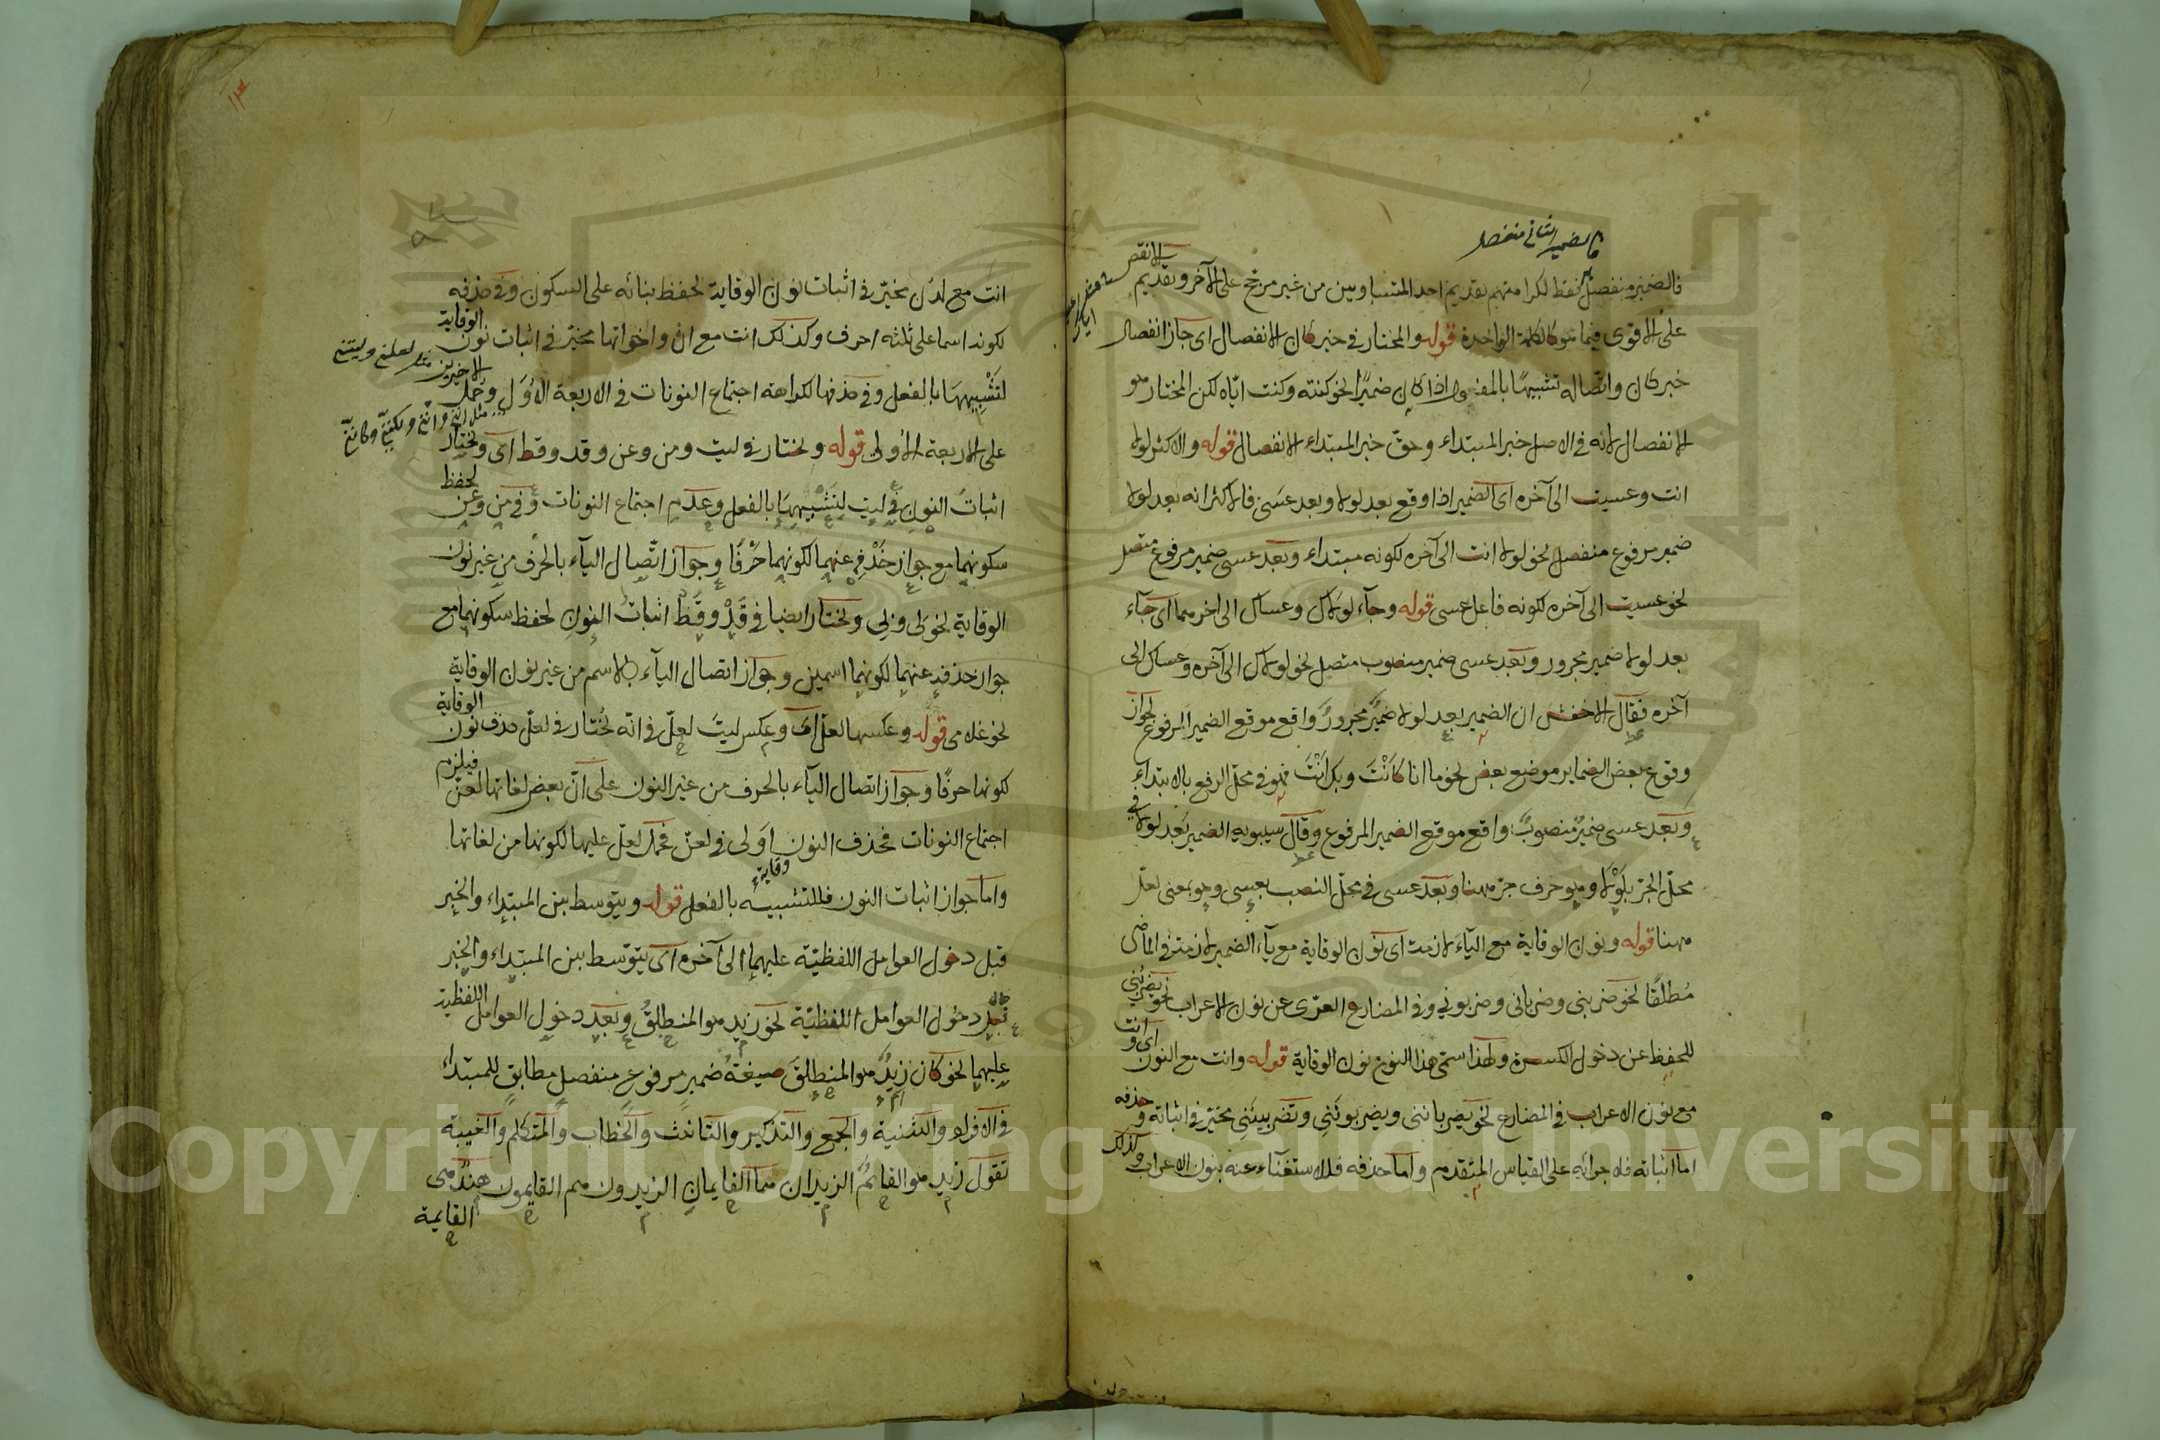 فالضمير الثاني منفصل
فالضمير منفصل فقط لكراهتهم تقديم احد المتساويين من غير مرجح على الآخر وتقديم الانقص
على الاقوى فيما هو كالكلمة الواحدة قوله والمختار في خبر كان الانفصال اى جاز انفصال
خبر كان واتصاله تشبيها بالمفعول اذا كان ضميرا نحو كنته وكنت اياه لكن المختار هو
الانفصال لانه في الاصل خبر المبتداء وحق خبر المبتداء الانفصال قوله والاكثر لولا
انت وعسيت الى آخره اى الضمير اذا وقع بعد لولا وبعد عسى فالاكثر انه بعد لولا
ضمير مرفوع منفصل نحو لولا انت الى آخره لكونه مبتداء وبعد عسى ضمير مرفوع متصل
نحو عسيت الى آخره لكونه فاعل عسى قوله وجاء لولاك وعساك الى اخرهما اى جاء
بعد لولا ضمير مجرور وبعد عسى ضمير منصوب متصل نحو لولاك الى آخره وعساك الى
آخره فقال الاخفش ان الضمير بعد لولا ضمير مجرور واقع موقع الضمير المرفوع لجواز
وقوع بعض الضماير موضع بعض نحو ما انا كانت وبك انت فهو في محل الرفع بالابتداء
وبعد عسى ضمير منصوب واقع موقع الضمير المرفوع وقال سيبويه الضمير بعد لولا في
محل الجر بلولا وهو حرف جر ههنا وبعد عسى في محل النصب بعسى وهو بمعنى لعل
ههنا قوله ونون الوقاية مع الياء لازمة اى نون الوقاية مع ياء الضمير لازمة في الماضى
مطلقا نحو ضربنى وضربانى وضربونى وفي المضارع العرى عن نون الاعراب نحو يضربنى
للحفظ عن دخول الكسرة ولهذا سمى هذا النوع نون الوقاية قوله وانت مع النون اى وانت
مع نون الاعراب في المضارع نحو يضرباننى ويضربوننى وتضربيننى مخير في اثباته وحذفه
اما اثباته فلاجرائه على القياس المتقدم واما حذفه فللاستغناء عنه بنون الاعراب وكذلك
انت مع لدن مخير في اثبات نون الوقاية لحفظ بنائه على السكون وفي حذفه
لكونه اسما على ثلثة احرف وكذلك انت مع ان واخواتها مخير في اثبات نون الوقاية
لتشبيهها بالفعل وفي حذفها لكراهة اجتماع النونات في الاربعة الاول وحمل الاخيرين
مثل لعلنى وليتنى
على الاربعة الاولى قوله ويختار في ليت ومن وعن وقد وقط اى ويختار
مثل اننى واننى ولكننى وكاننى
اثبات النون في ليت لتشبيهها بالفعل وعدم اجتماع النونات وفي من وعن لحفظ
سكونهما مع جواز حذف عنهما لكونهما حرفا وجواز اتصال الياء بالحرف من غير نون
الوقاية نحو لى وبى ويختار ايضا في قد وقط اثبات النون لحفظ سكونهما مع
جواز حذفه عنهما لكونهما اسمين وجواز اتصال الياء بالاسم من غير نون الوقاية
نحو غلامى قوله وعكسها لعل اى وعكس ليت لعل في انه يختار في لعل حذف نون الوقاية
لكونها حرفا وجواز اتصال الياء بالحرف من غير النون على ان بعض لغاتها لعن فيلزم
اجتماع النونات فحذف النون اولى في لعن فحمل لعل عليها لكونها من لغاتها
واما جواز اثبات النون فللتشبيه بالفعل قوله ويتوسط بين المبتداء والخبر
وقاية
قبل دخول العوامل اللفظية عليهما الى آخره اى يتوسط بين المبتداء والخبر
قبل دخول العوامل اللفظية نحو زيد هو المنطلق وبعد دخول العوامل اللفظية
عليهما نحو كان زيد هو المنطلق صيغة ضمير مرفوع منفصل مطابق للمبتداء
في الافراد والتثنية والجمع والتذكير والتانيث والخطاب والمتكلم والغيبة
تقول زيد هو القائم الزيدان هما القايمان الزيدون هم القايمون هند هى
القايمة